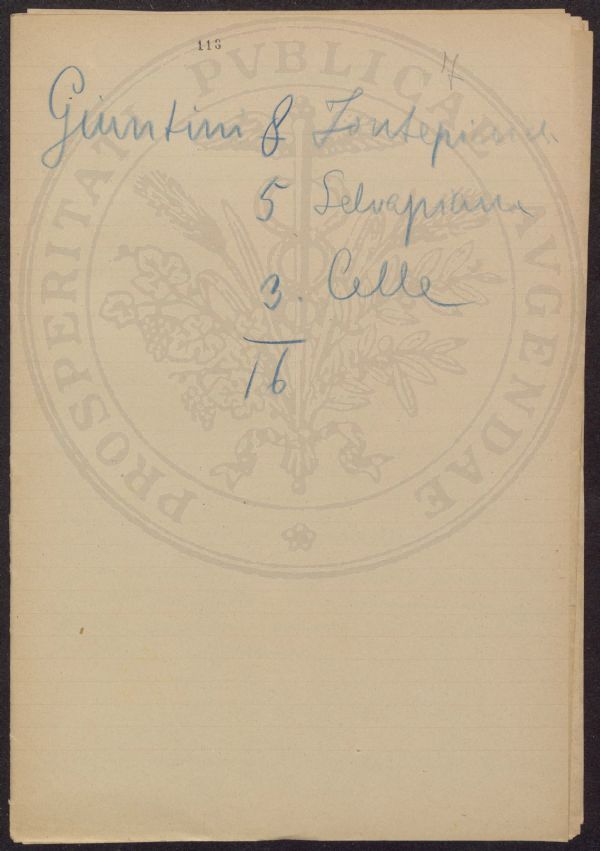 113
7
Giuntini 8 Fontepiana
5 Selvapiana
3. Celle
16
PROSPERITATI PVBLICAE AVGENDAE